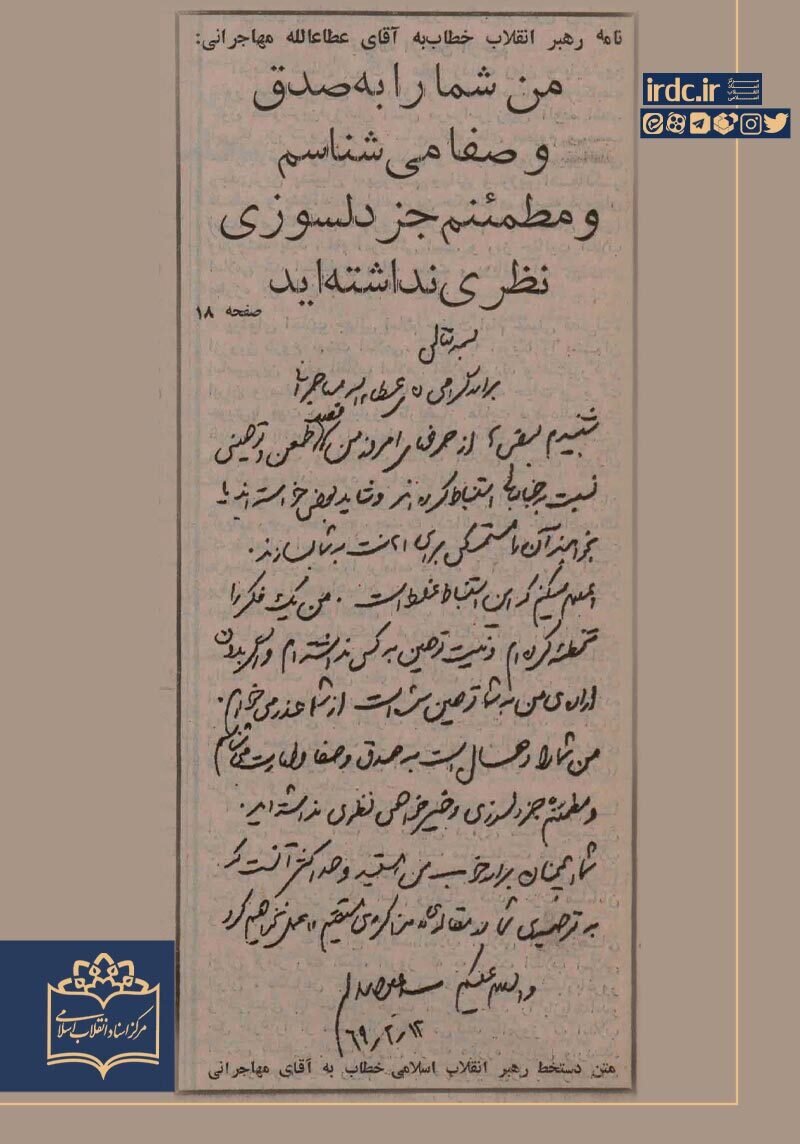 نامه رهبر انقلاب خطاب‌به آقای عطاءالله مهاجرانی:
من شما را به صدق
و صفا می‌شناسم
و مطمئنم جز دلسوزی
نظری نداشته‌اید
صفحه ۱۸
irdc.ir
مرکز اسناد انقلاب اسلامی
بسمه تعالی
برادر گرامی آقای عطاءالله مهاجرانی
شنیدم بعضی از حرفهای امروز من قصد طعن و توهینی
نسبت به جنابعالی استنباط کرده‌اند و شاید بعضی خواسته‌اند یا
بخواهند آن را مستمسکی برای اهانت به شما بسازند.
اعلام میکنم که این استنباط غلط است. من یک فکر را
تخطئه کرده‌ام و نیت توهین به کسی نداشته‌ام و اگر بدون
اراده‌ی من به شما توهین شده است از شما عذر می‌خواهم.
من شما را سال است به صدق و صفا می‌شناسم
و مطمئنم جز دلسوزی و خیرخواهی نظری نداشته‌اید.
شما همچنان برادر خوب من هستید و حداکثر آنست که
به توصیه‌ی شما در مقاله‌ی «مذاکره‌ی مستقیم» عمل نخواهیم کرد
والسلام علیکم
۶۹/۲/۱۲
متن دستخط رهبر انقلاب اسلامی خطاب به آقای مهاجرانی
مرکز اسناد انقلاب اسلامی